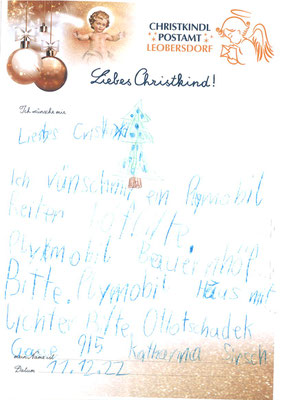 CHRISTKINDL
POSTAMT
LEOBERSDORF
Liebes Christkind!
Ich wünsche mir
Liebs Cristkid
Ich vünschmir ein Plymobil
Reiten
Plykmobil Bauernhof
Bitte. Plymobil Haus mit
Lichter Bitte Ottotschadek
Gasse 915 Katharina Sirsch
mein Name ist
Datum 11.12.22